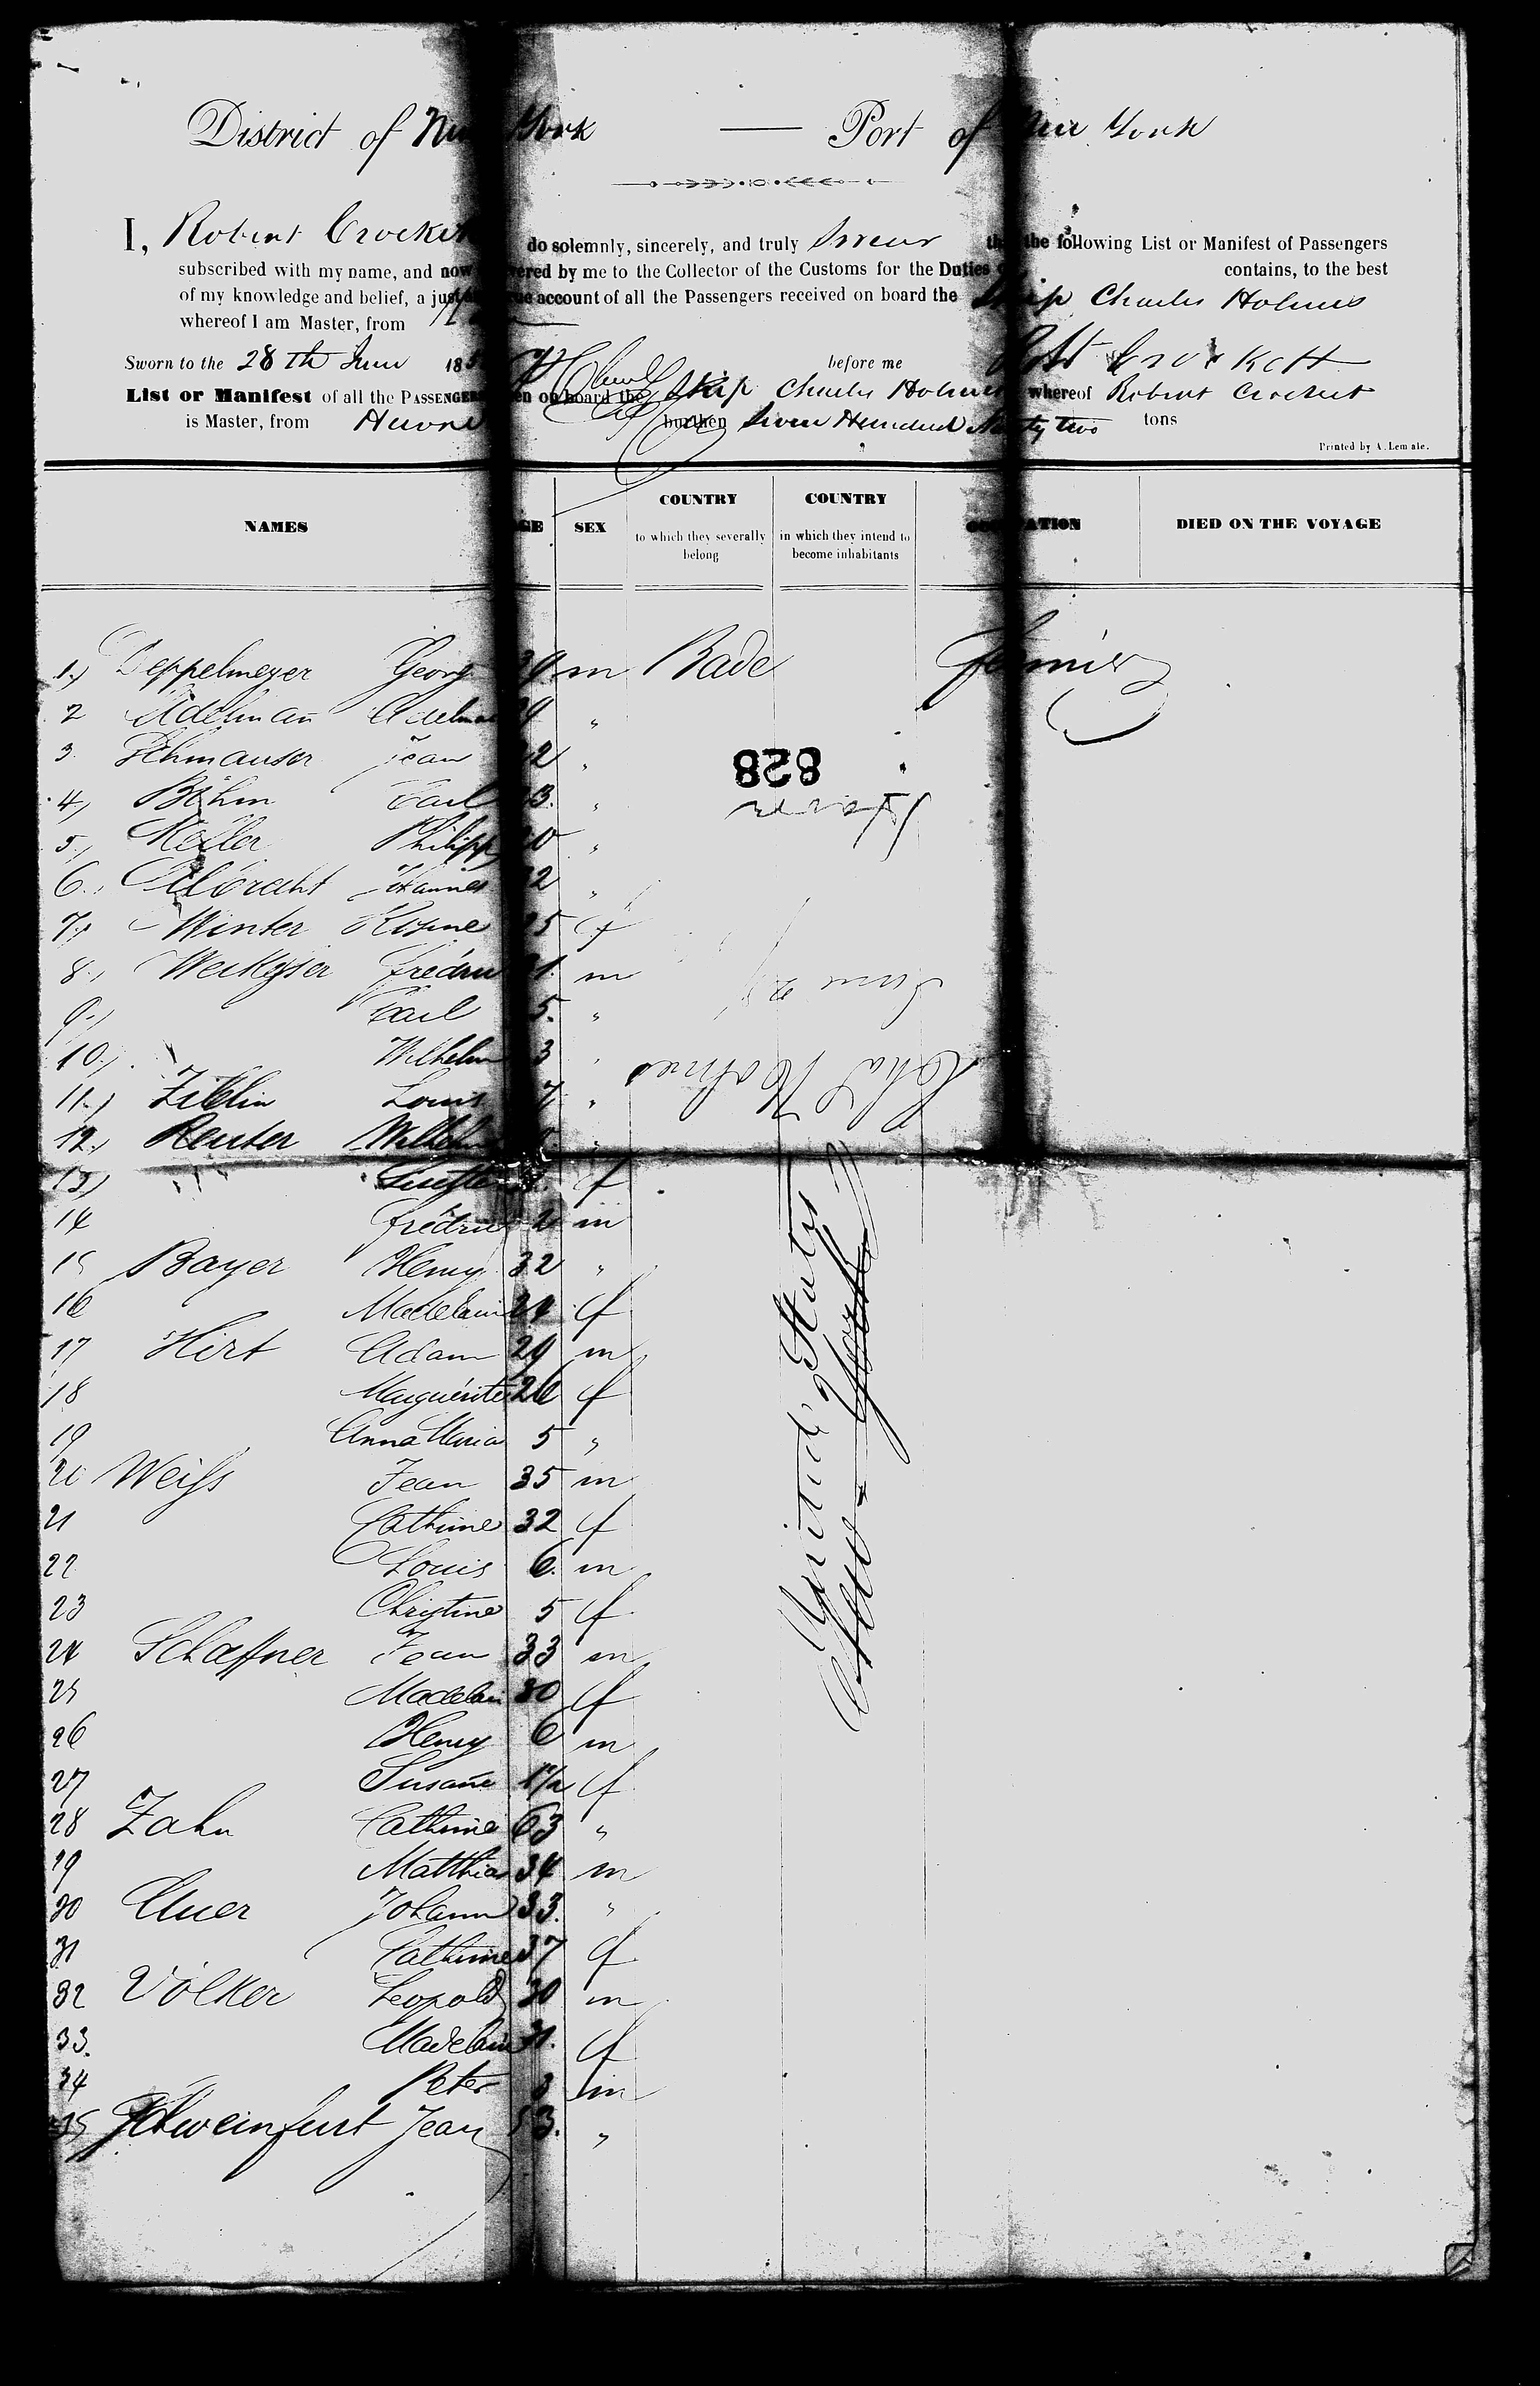 District of New York — Port of New York
I, Robert Crockett do solemnly, sincerely, and truly Swear that the following List or Manifest of Passengers
subscribed with my name, and now delivered by me to the Collector of the Customs for the Duties contains, to the best
of my knowledge and belief, a just and true account of all the Passengers received on board the Ship Charles Holmes
whereof I am Master, from
Sworn to the 28th June 185 before me Robt Crockett
List or Manifest of all the PASSENGERS taken on board the Ship Charles Holmes whereof Robert Crockett
is Master, from Havre burthen Seven Hundred Ninety two tons
Printed by A. Lemale.
NAMES AGE SEX COUNTRY to which they severally belong COUNTRY in which they intend to become inhabitants OCCUPATION DIED ON THE VOYAGE
1.) Deppelmeyer Georg m Bade
2 Adelman
3. Schmauser Jean "
828
4) Böhm Carl "
Havre
5.) Keller Philipp "
6., Albracht "
7.) Winter f
8., m
June 28
9.) Carl 5. "
10.) Wilhelm 3 "
Chas Holmes
11.) Louis "
12.) Reuter Wilhelm "
13) f
14 m
15 Bayer Henry 32 "
16 Madelain f
17 Hirt Adam 29 m
18 Marguerite 26 f
19 Anna Maria 5 "
20 Weiss Jean 35 m
21 Cathrine 32 f
22 Louis 6. m
23 Christine 5 f
24 Schaffner Jean 33 m
25 Madelain 30 f
26 Henry 6 m
27 Susane 1 1/2 f
28 Zahn Cathrine 63 "
29 Matthias 34 m
30 Auer Johann 33. "
31 Cathrine 37 f
32 Völker Leopold 30 m
33. Madelain 31. f
34 Peter 3 m
35 Schweinfurt Jean 53. "
United States
New York